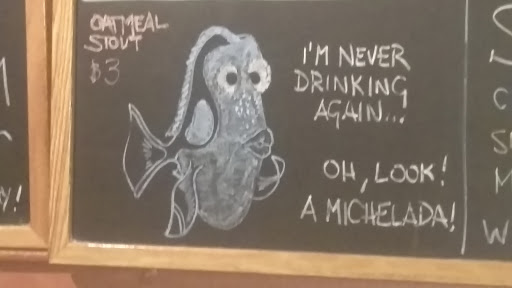 OATMEAL
STOUT
$3
I'M NEVER
DRINKING
AGAIN...
OH, LOOK!
A MICHELADA!